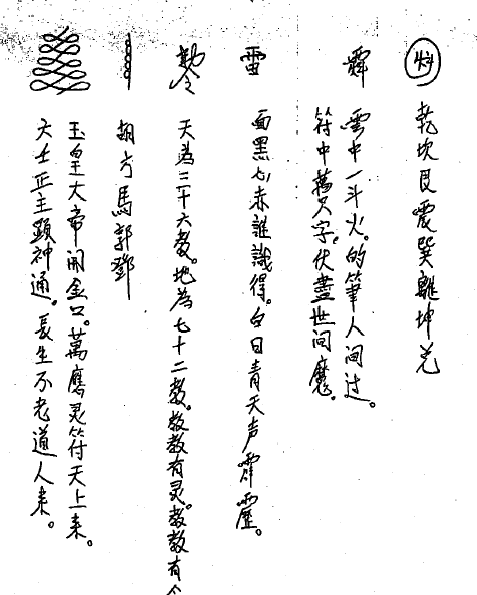 乾坎艮震巽離坤兌
雲中一斗火。的筆人间过。
符中萬只字。伏盡世间魔。
雷 面黑心赤誰識得。白日青天声霹靂。
勅令 天為三十六教。地為七十二教。教教有灵。教教有
胡方馬郭鄧
玉皇大帝開金口。萬應灵符天上来。
天士正主顕神通。長生不老道人来。